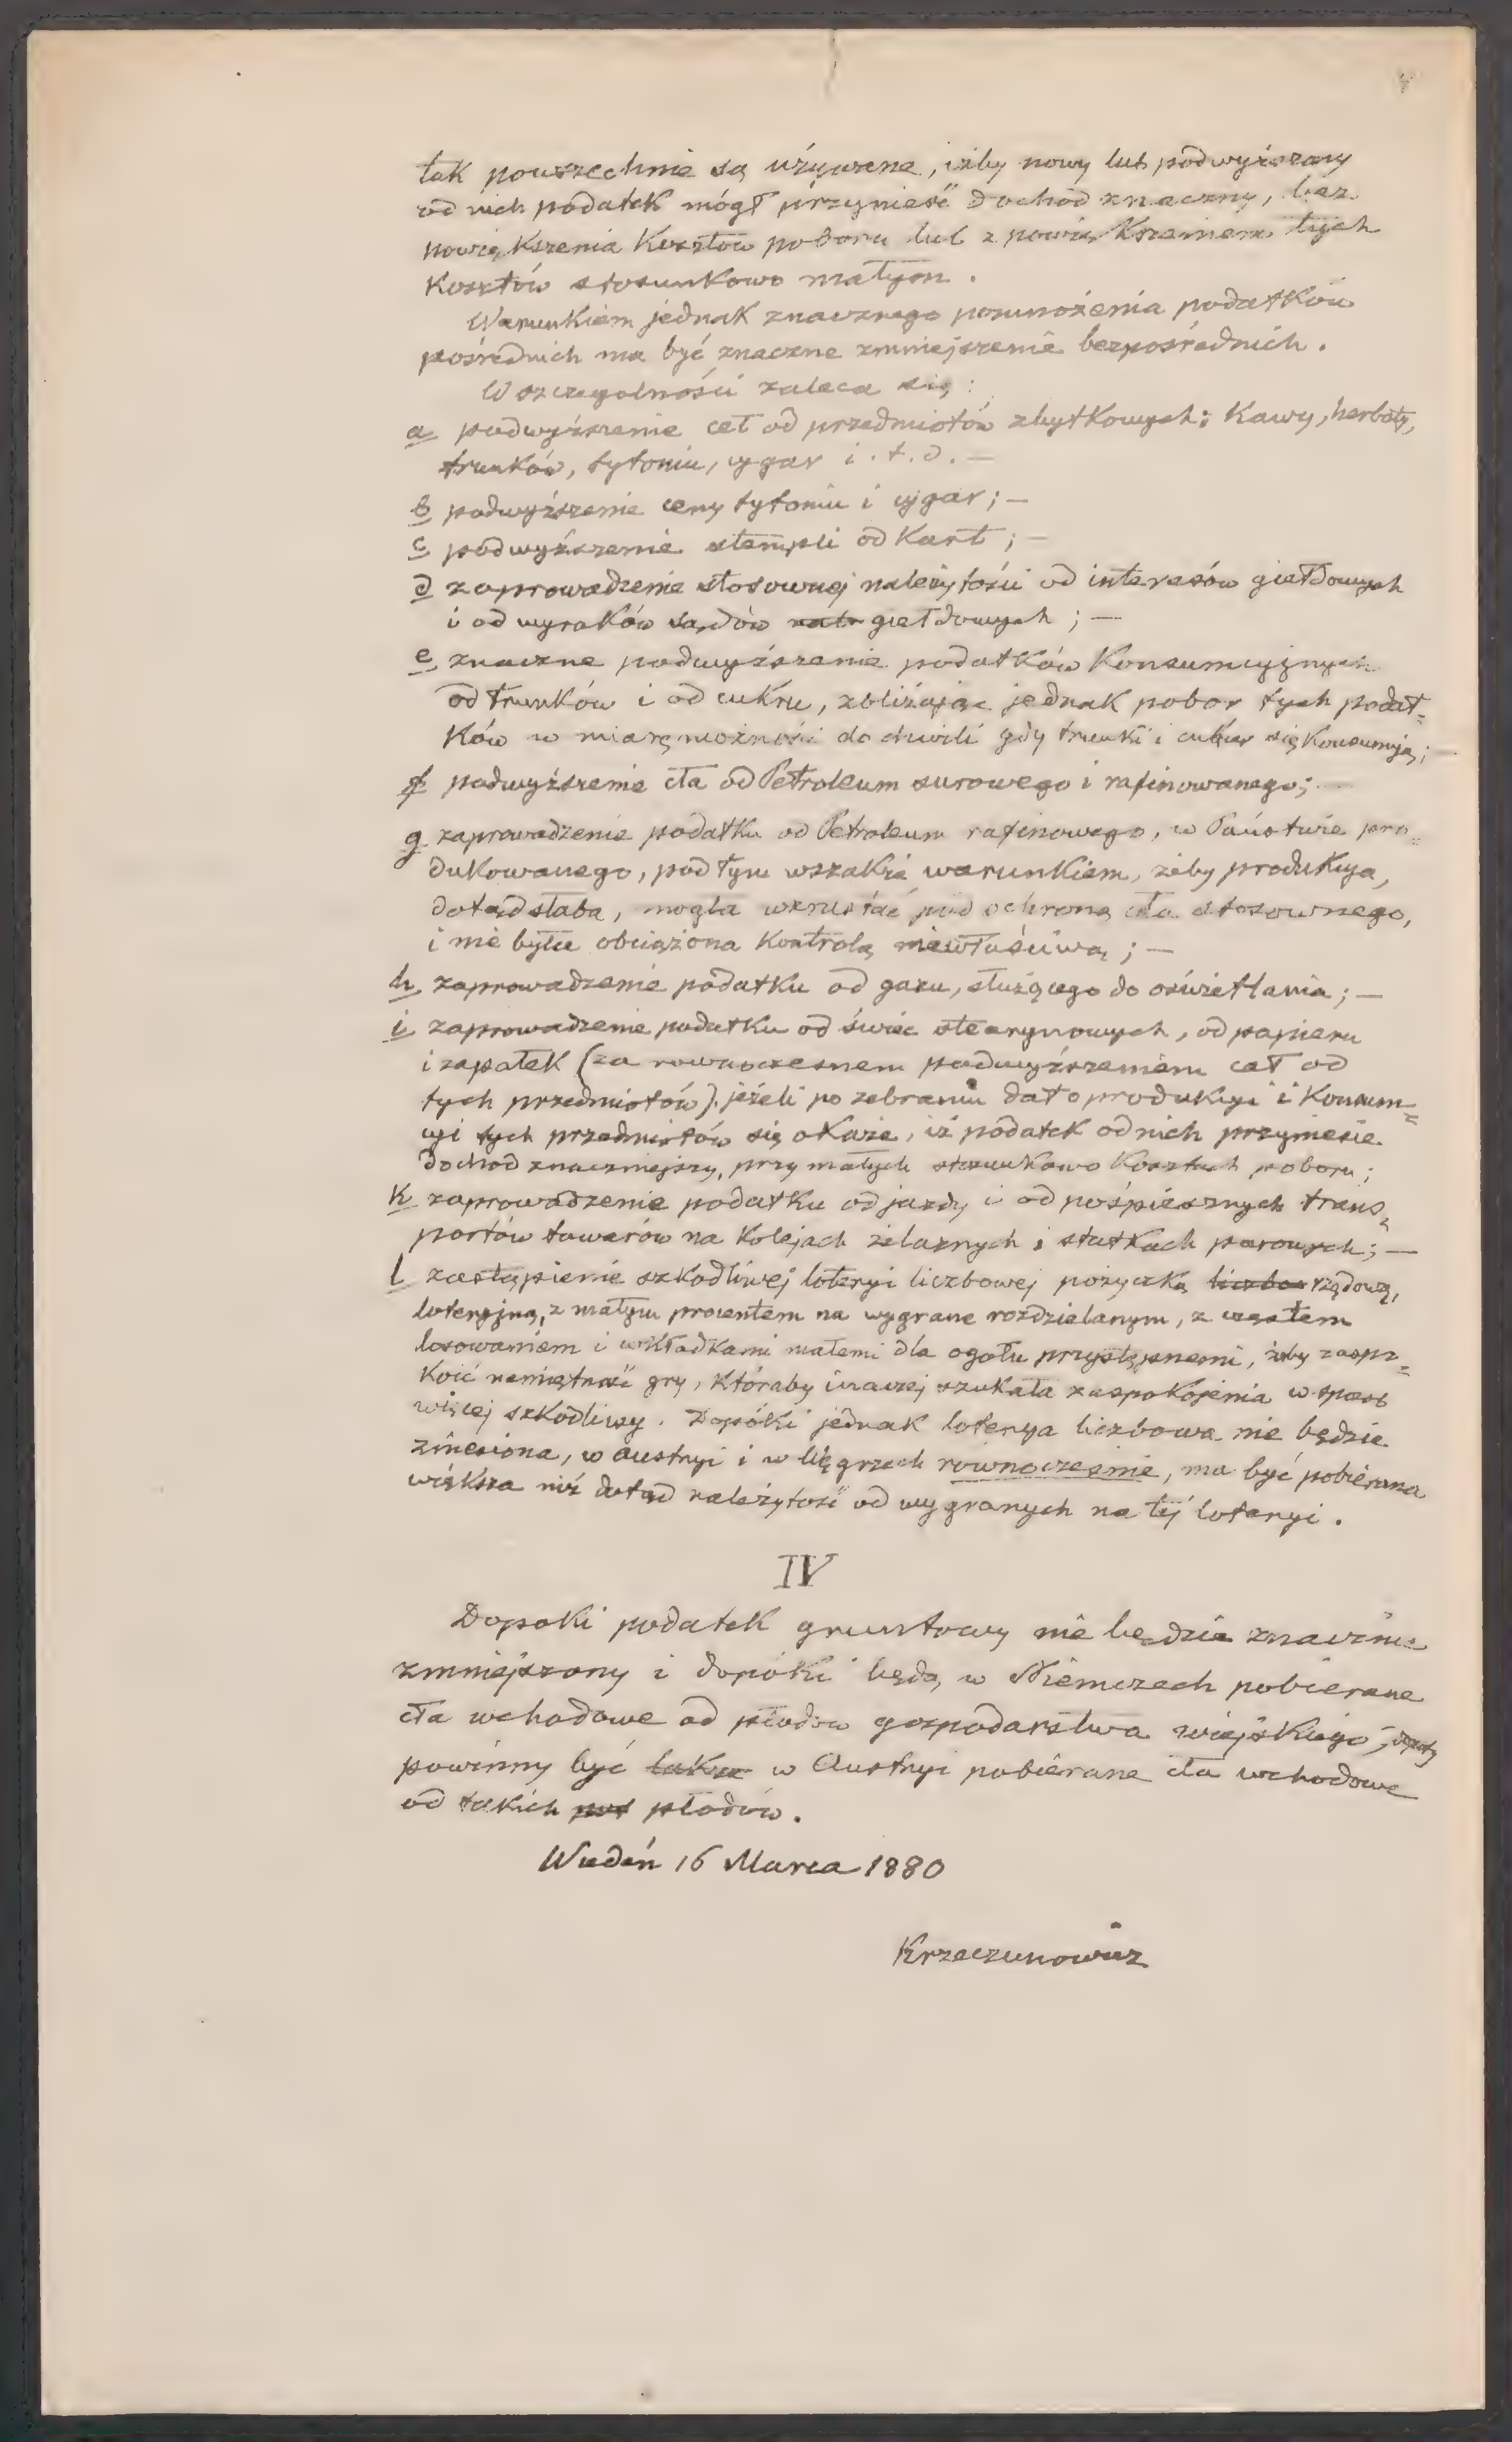 tak powszechnie są używane, iżby nowy lub podwyższony
od nich podatek mógł przynieść dochód znaczny, bez
powiększenia kosztów poboru lub z powiększeniem tych
kosztów stosunkowo małym.
Warunkiem jednak znacznego pomnożenia podatków
pośrednich ma być znaczne zmniejszenie bezpośrednich.
W szczegolności zaleca się:
a podwyższenie ceł od przedmiotów zbytkowych: kawy, herbaty,
trunków, tytoniu, cygar i.t.d. —
b podwyższenie ceny tytoniu i cygar; —
c podwyższenie stempli od kart; —
d zaprowadzenie stosownej należytości od interesów giełdowych
i od wyroków sądów giełdowych; —
e znaczne podwyższenie podatków konsumcyjnych
od trunków i od cukru, zbliżając jednak pobor tych podat=
ków w miarę możności do chwili gdy trunki i cukier się konsumują; —
f podwyższenie cła od Petroleum surowego i rafinowanego; —
g zaprowadzenie podatku od Petroleum rafinowego, w Państwie pro=
dukowanego, pod tym wszakże warunkiem, żeby produkcya,
dotąd słaba, mogla wzrustać pod ochroną cła stosownego,
i nie była obciążona kontrolą niewłaściwą; —
h zaprowadzenie podatku od gazu, służącego do oświetlania; —
i zaprowadzenie podatku od świec stearynowych, od papieru
i zapałek (za rownoczesnem podwyższeniem ceł od
tych przedmiotów), jeżeli po zebraniu dat o produkcyi i konsum=
cyi tych przedmiotów się okaże, iż podatek od nich przyniesie
dochod znaczniejszy, przy małych stosunkowo kosztach poboru;
k zaprowadzenie podatku od jazdy i od pośpiesznych trans=
portów towarów na kolejach żelaznych i statkach parowych; —
l zastąpienie szkodliwej loteryi liczbowej pożyczką liczbo rządową,
loteryjną, z małym procentem na wygrane rozdzielanym, z częstem
losowaniem i wkładkami małemi dla ogołu przystępnemi, żeby zaspo=
koić namiętność gry, któraby inaczej szukała zaspokojenia w sposob
więcej szkodliwy. Dopóki jednak loterya liczbowa nie będzie
zniesiona, w Austryi i w Węgrzech rownocześnie, ma być pobierana
większa niż dotąd należytość od wygranych na tej loteryi.
IV
Dopoki podatek gruntowy nie będzie znacznie
zmniejszony i dopóki będą w Niemczech pobierane
cła wchodowe od płodow gospodarstwa wiejskiego,
powinny być także w Austryi pobierane cła wchodowe
od takich płodów.
Wiedeń 16 Marca 1880
Krzeczunowicz